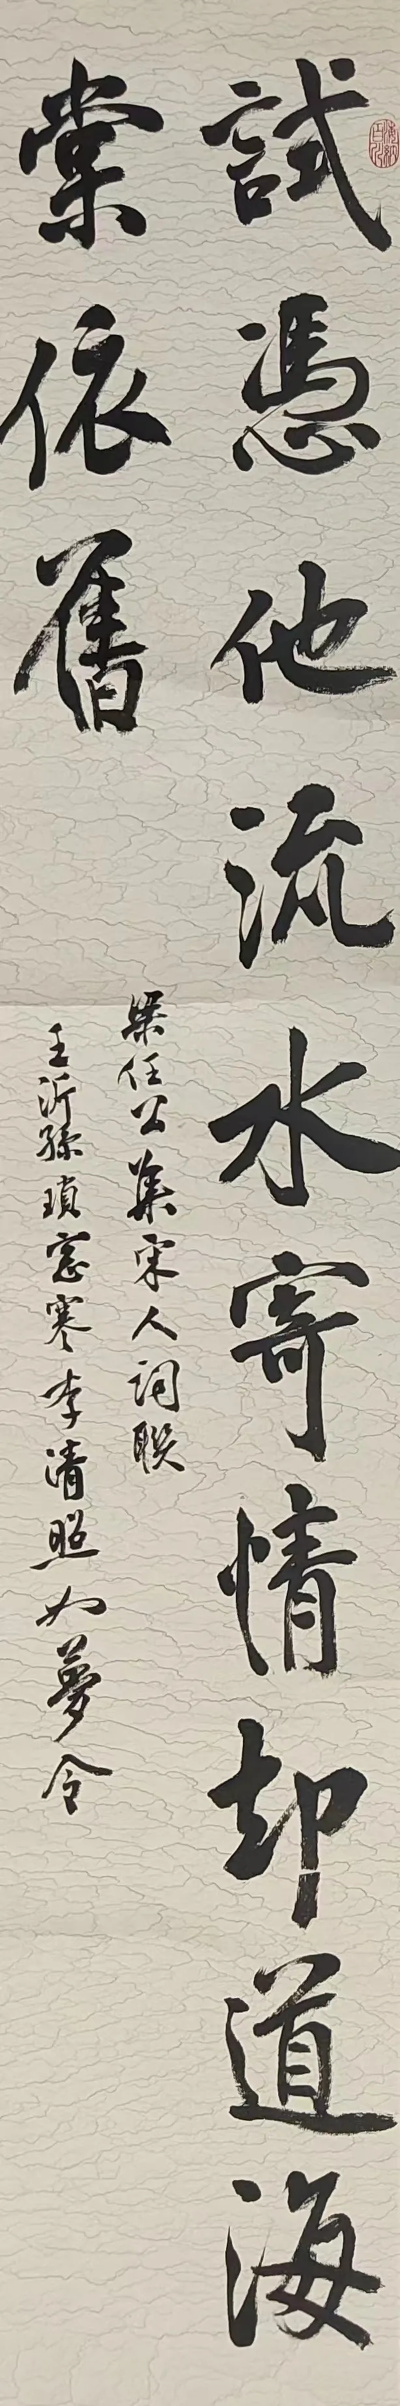 試憑他流水寄情却道海
棠依舊
梁任公集宋人詞联
王沂孫瑣窓寒李清照如夢令